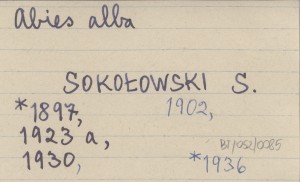 Abies alba
SOKOŁOWSKI S.
*1897, 1902,
1923 a, BI/052/0085
1930, *1936